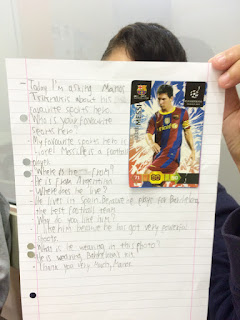 - Today I'm asking Marcos
about his
favourite sports hero.
- Who is your favourite
sports hero?
- My favourite sports hero is
Lionel Messi. He is a football
player.
- Where is from?
- He is from Argentina.
- Where does he live?
- He lives in Spain because he plays for Barcelona,
the best football team.
- Why do you like him?
- I like him because he has got very powerful
- What is he wearing in this photo?
- He is wearing Barcelona's kit.
- Thank you very much, Marcos
unicef